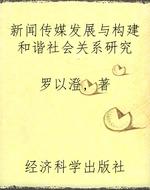 新闻传媒发展与构建
和谐社会关系研究
罗以澄，著
经济科学出版社